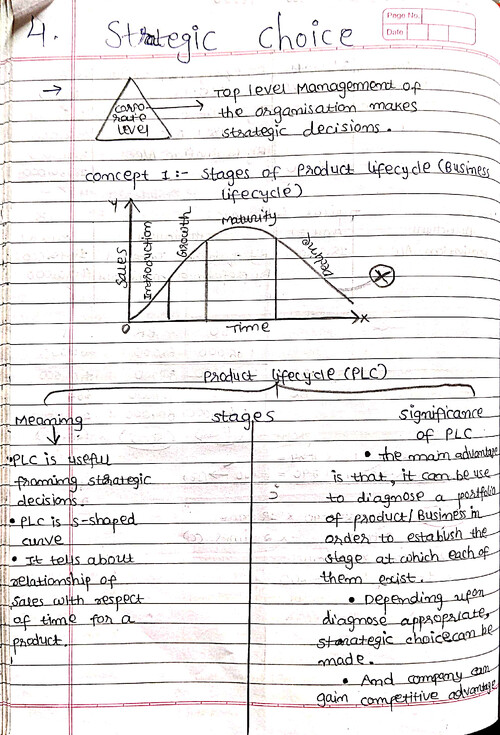 4. Strategic choice
Page No.
Date
→ corpo-
rate
level
→ Top level Management of
the organisation makes
strategic decisions.
concept 1:- stages of Product lifecycle (Business
lifecycle)
Y
Sales
Introduction
Growth
Maturity
Decline
X
0
Time
→x
Product lifecycle (PLC)
Meaning
• PLC is useful
framing strategic
decisions.
• PLC is s-shaped
curve
• It tells about
relationship of
sales with respect
of time for a
product.
stages
significance
of PLC
• the main advantage
is that, it can be use
to diagnose a portfolio
of product/Business in
order to establish the
stage at which each of
them exist.
• Depending upon
diagnose appropriate,
strategic choice can be
made.
• And company can
gain competitive advantage